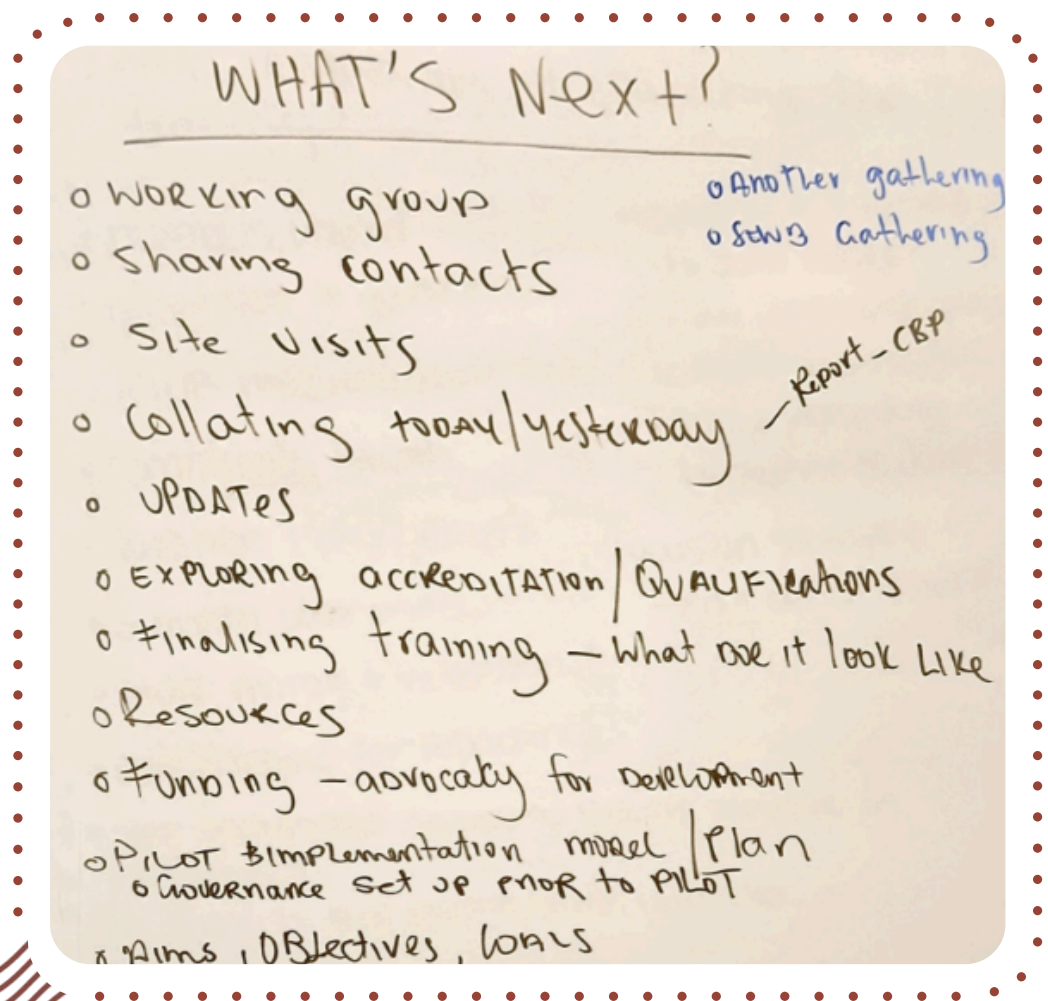 WHAT'S Next?
o Working group
o Sharing contacts
o Site visits
o Collating today/yesterday — Report - CBP
o UPDATES
o Exploring accreditation / Qualifications
o Finalising training — What doe it look like
o Resources
o Funding — advocaky for development
o Pilot & implementation model / Plan
o Governance set up prior to PILOT
Aims, Objectives, Goals
o Another gathering
o Gathering